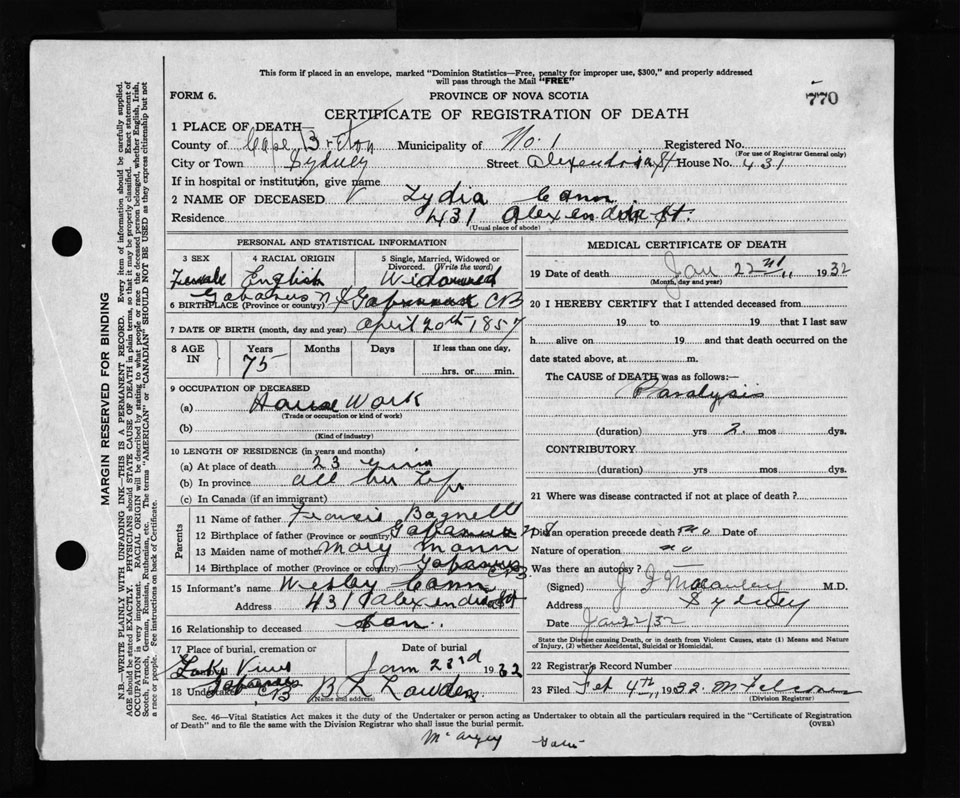 This form if placed in an envelope, marked "Dominion Statistics—Free, penalty for improper use, $300," and properly addressed
will pass through the Mail "FREE"
FORM 6. PROVINCE OF NOVA SCOTIA 770
CERTIFICATE OF REGISTRATION OF DEATH
1 PLACE OF DEATH—
County of Cape Breton Municipality of No. 1 Registered No.
(For use of Registrar General only)
City or Town Sydney Street Alexendria St House No. 431
If in hospital or institution, give name
2 NAME OF DECEASED Lydia Cann
Residence 431 Alexendria St.
(Usual place of abode)
PERSONAL AND STATISTICAL INFORMATION
3 SEX 4 RACIAL ORIGIN 5 Single, Married, Widowed or Divorced. (Write the word)
Female English Widowed
6 BIRTHPLACE (Province or country) Gabarus N S Gabarus CB
7 DATE OF BIRTH (month, day and year) April 20th 1857
8 AGE IN Years Months Days If less than one day,
75 hrs. or min.
9 OCCUPATION OF DECEASED
(a) House Work
(Trade or occupation or kind of work)
(b)
(Kind of industry)
10 LENGTH OF RESIDENCE (in years and months)
(a) At place of death 23 years
(b) In province all her Life
(c) In Canada (if an immigrant)
Parents
11 Name of father Francis Bagnell
12 Birthplace of father (Province or country) Gabarus N S
13 Maiden name of mother Mary Mann
14 Birthplace of mother (Province or country) Gabarus CB
15 Informant's name Wesley Cann
Address 431 Alexendria St
16 Relationship to deceased Son
17 Place of burial, cremation or Date of burial
View Jann 23rd 1932
Gabarus CB
18 Undertaker B L Lowden
(Name and address)
MEDICAL CERTIFICATE OF DEATH
19 Date of death Jan 22nd 1932
(Month, day and year)
20 I HEREBY CERTIFY that I attended deceased from
19 to 19 that I last saw
h alive on 19 and that death occurred on the
date stated above, at m.
The CAUSE of DEATH was as follows:—
Paralysis
(duration) yrs 2 mos dys.
CONTRIBUTORY
(duration) yrs mos dys.
21 Where was disease contracted if not at place of death?
Did an operation precede death? no Date of
Nature of operation no
Was there an autopsy? —
(Signed) J J Macauley M.D.
Address Sydney
Date Jan 22/32
State the Disease causing Death, or in death from Violent Causes, state (1) Means and Nature
of Injury, (2) whether Accidental, Suicidal or Homicidal.
22 Registrar's Record Number
23 Filed Feb 4th 1932
(Division Registrar)
Sec. 46—Vital Statistics Act makes it the duty of the Undertaker or person acting as Undertaker to obtain all the particulars required in the "Certificate of Registration
of Death" and to file the same with the Division Registrar who shall issue the burial permit. (OVER)
MARGIN RESERVED FOR BINDING
N.B.—WRITE PLAINLY WITH UNFADING INK—THIS IS A PERMANENT RECORD. Every item of information should be carefully supplied.
AGE should be stated EXACTLY. PHYSICIANS should STATE CAUSE OF DEATH in plain terms, so that it may be properly classified. Exact statement of
OCCUPATION is very important. RACIAL ORIGIN will be described by stating to what people or race the deceased person belonged, whether English, Irish,
Scotch, French, German, Russian, Ruthenian, etc. The terms "AMERICAN" or "CANADIAN" SHOULD NOT BE USED as they express citizenship but not
a race or people. See instructions on back of Certificate.